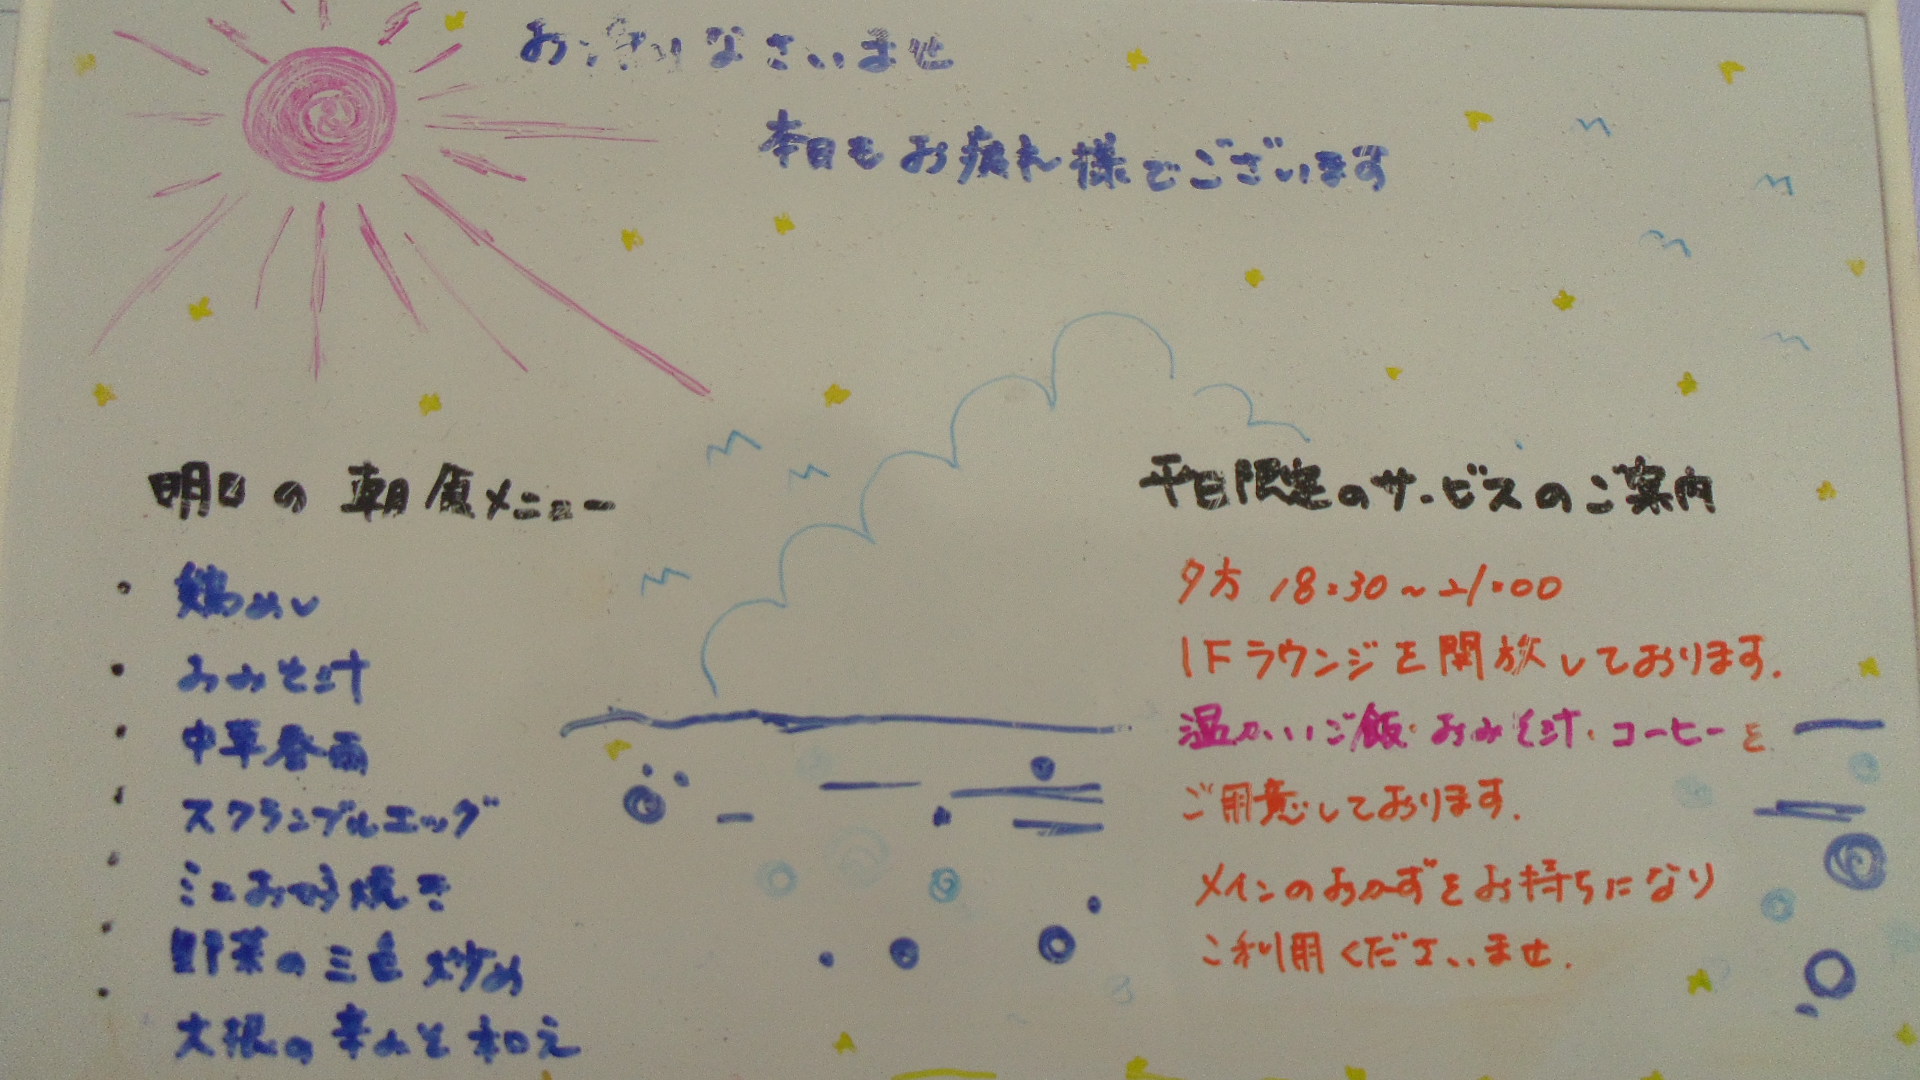 お帰りなさいませ
本日もお疲れ様でございます
明日の朝食メニュー
・鶏めし
・おみそ汁
・中華春雨
・スクランブルエッグ
・ミニお好み焼き
・野菜の三色炒め
・大根の辛みそ和え
平日限定のサービスのご案内
夕方 18:30~21:00
1Fラウンジを開放しております.
温かいご飯・おみそ汁・コーヒーを
ご用意しております.
メインのおかずをお持ちになり
ご利用くださいませ.